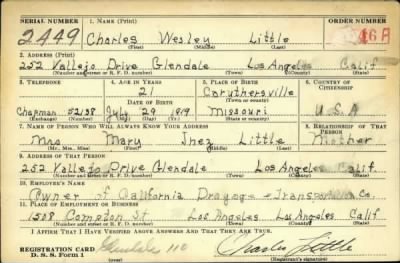 SERIAL NUMBER 1. NAME (Print) ORDER NUMBER
2449 Charles Wesley Little 46A
(First) (Middle) (Last)
2. ADDRESS (Print)
252 Vallejo Drive Glendale Los Angeles Calif.
(Number and street or R. F. D. number) (Town) (County) (State)
3. TELEPHONE 4. AGE IN YEARS 5. PLACE OF BIRTH 6. COUNTRY OF CITIZENSHIP
21 Caruthersville
DATE OF BIRTH (Town or county)
Chapman 52138 July 29 1919 Missouri U S A
(Exchange) (Number) (Mo.) (Day) (Yr.) (State or country)
7. NAME OF PERSON WHO WILL ALWAYS KNOW YOUR ADDRESS 8. RELATIONSHIP OF THAT PERSON
Mrs Mary Inez Little Mother
(Mr., Mrs., Miss) (First) (Middle) (Last)
9. ADDRESS OF THAT PERSON
252 Vallejo Drive Glendale Los Angeles Calif
(Number and street or R. F. D. number) (Town) (County) (State)
10. EMPLOYER'S NAME
Owner of California Drayage Co.
11. PLACE OF EMPLOYMENT OR BUSINESS
1508 Compton St Los Angeles Los Angeles Calif
(Number and street or R. F. D. number) (Town) (County) (State)
I AFFIRM THAT I HAVE VERIFIED ABOVE ANSWERS AND THAT THEY ARE TRUE.
REGISTRATION CARD Glendale 110 Charles Little
D. S. S. Form 1 (Registrant's signature)